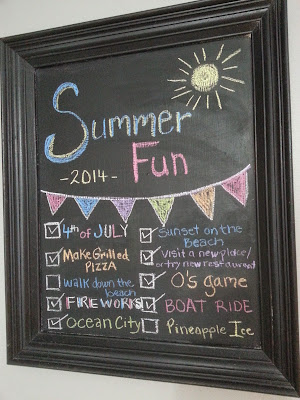 Summer
Fun
-2014-
4th of JULY
Make Grilled
PIZZA
Walk down the
beach
FIREWORKS
Ocean City
Sunset on the
Beach
Visit a new place/
or try new restaurant
O's game
BOAT RIDE
Pineapple Ice